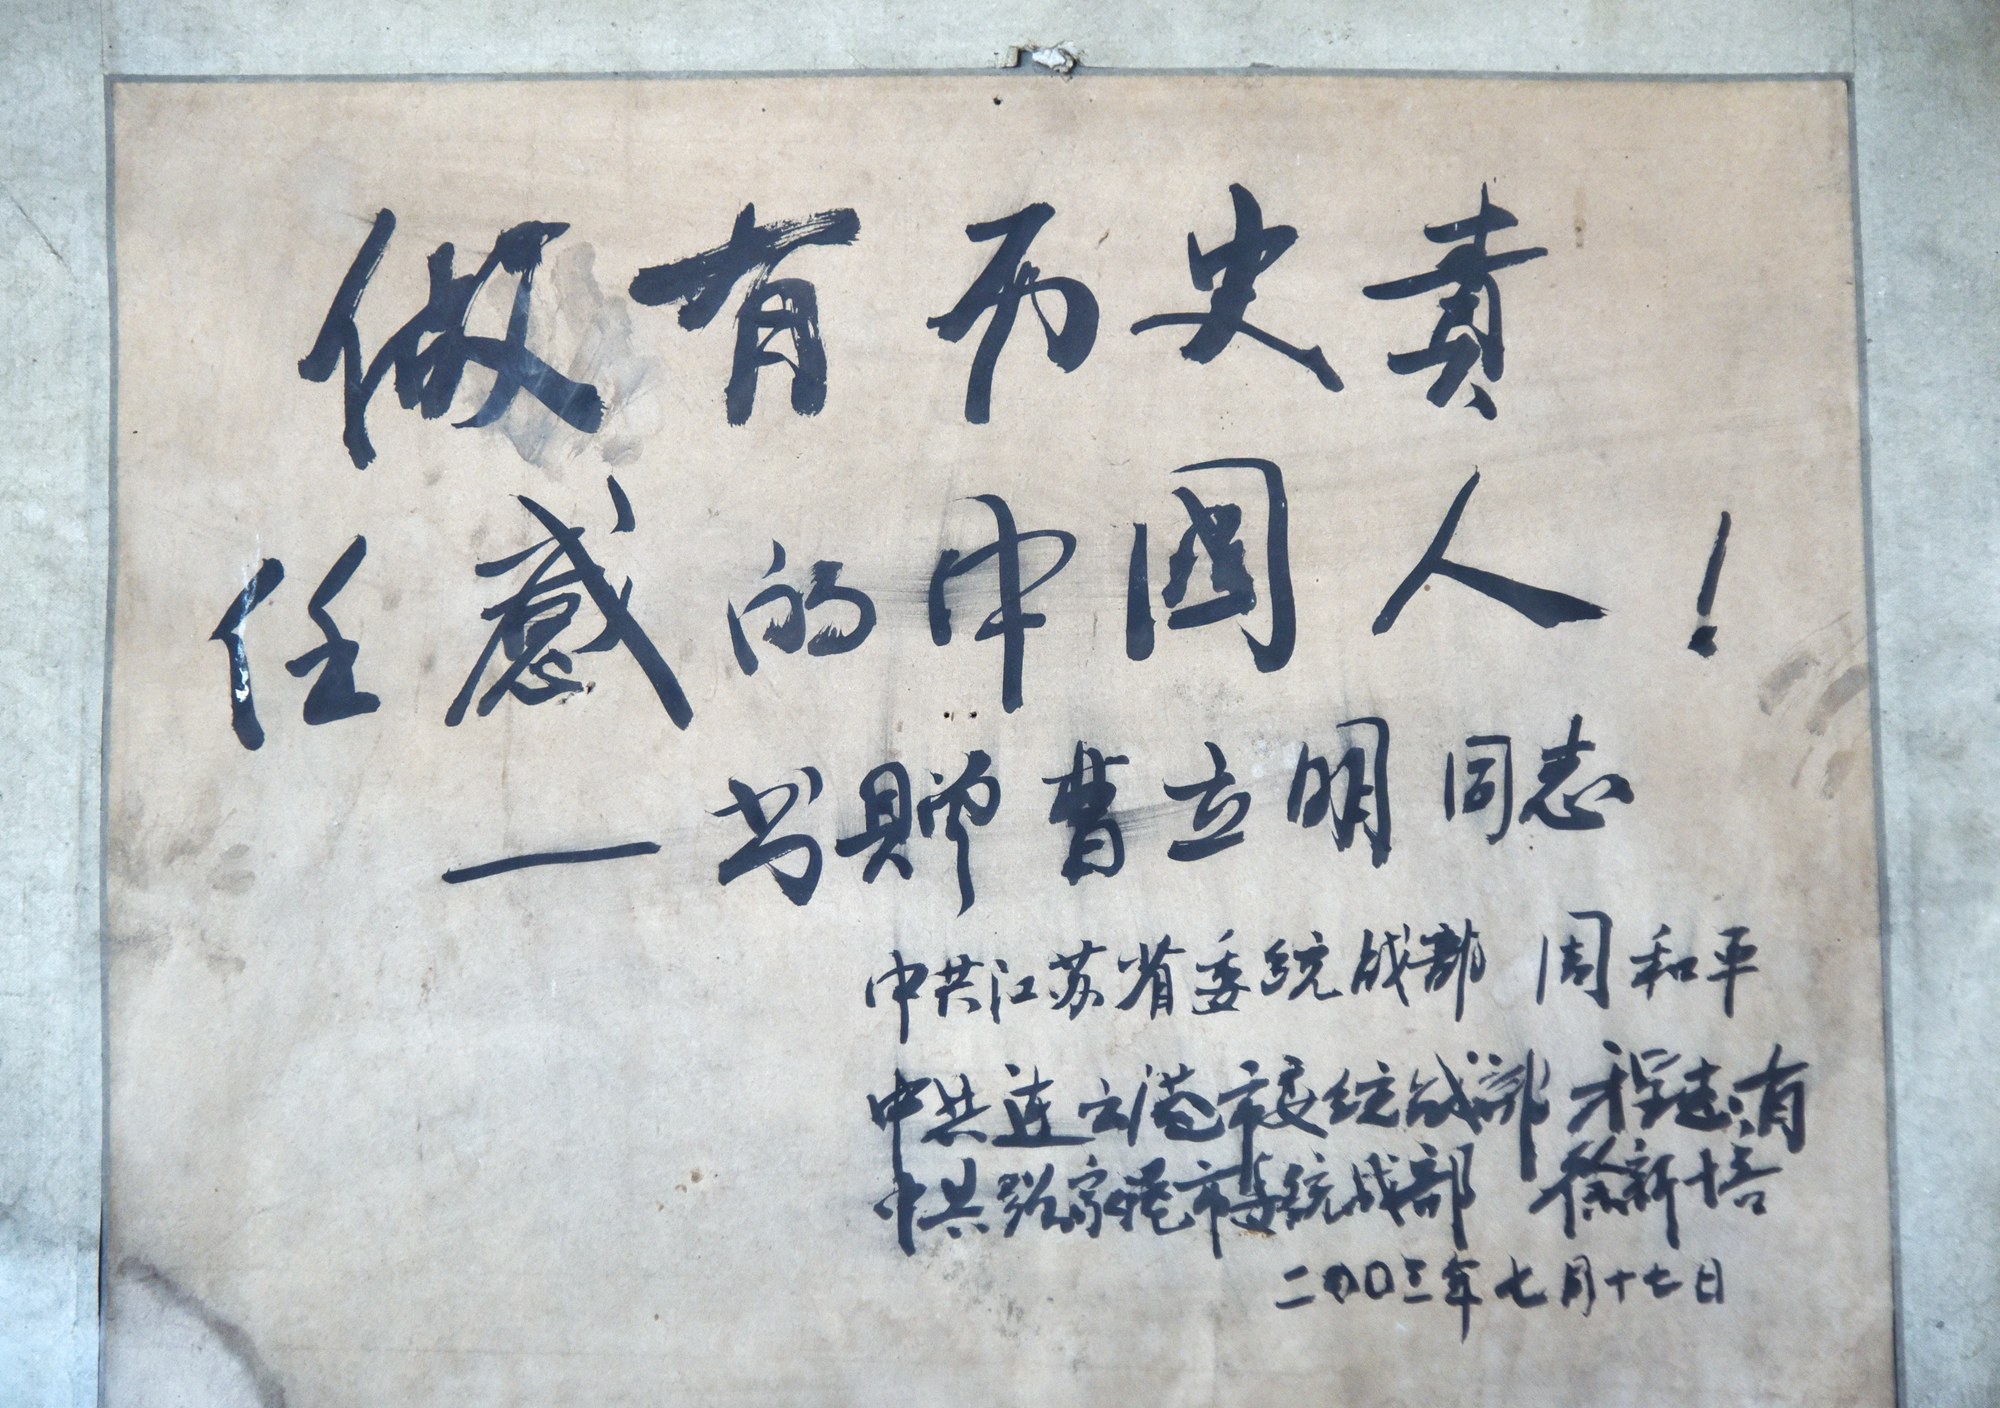 做有历史责
任感的中國人！
——书赠曹立明同志
中共江苏省委统战部 周和平
中共连云港市委统战部 程志有
中共张家港市委统战部 徐新培
二〇〇三年七月十七日